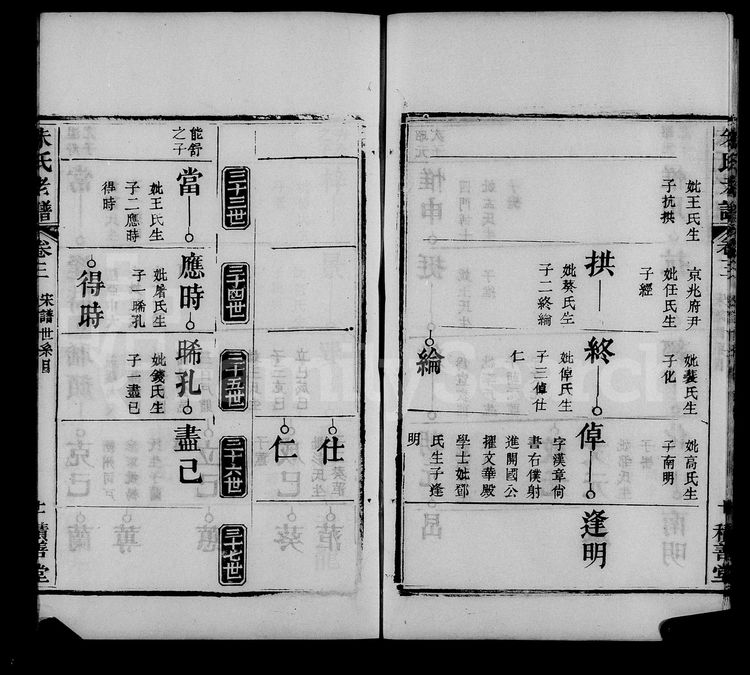 妣王氏生
子抗拱
京兆府尹
妣任氏生
子經
妣蔡氏生
子化
妣高氏生
子南明
拱
妣蔡氏生
子二終綸
終
妣倬氏生
子三倬仕
仁
倬
字漢章尙
書右僕射
進開國公
擢文華殿
學士妣鄧
氏生子逢
明
逢明
綸
仕
仁
三十三世
三十四世
三十五世
三十六世
三十七世
能舒
之子
當
妣王氏生
子二應時
得時
應時
妣屠氏生
子一晞孔
晞孔
妣錢氏生
子一盡已
盡已
得時
朱氏老譜
卷三
宋譜世系圖
十一
積善堂